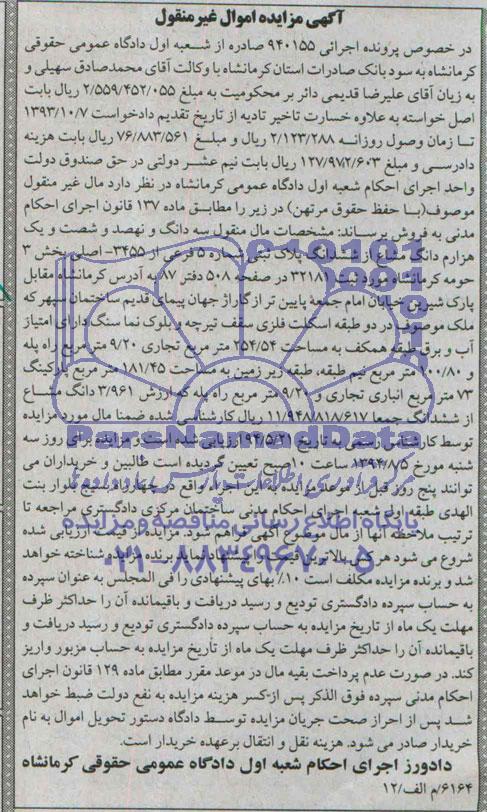 آگهی مزایده اموال غیر منقول
در خصوص پرونده اجرائی ۹۴۰۱۵۵ صادره از شعبه اول دادگاه عمومی حقوقی
کرمانشاه به سود بانک صادرات استان کرمانشاه با وکالت آقای محمدصادق سهیلی و
به زیان آقای علیرضا قدیمی دائر بر محکومیت به مبلغ ۲/۵۵۹/۴۵۲/۰۵۵ ریال بابت
اصل خواسته به علاوه خسارت تاخیر تادیه از تاریخ تقدیم دادخواست ۱۳۹۳/۱۰/۷
تا زمان وصول روزانه ۲/۱۲۳/۲۸۸ ریال و مبلغ ۷۶/۸۸۳/۵۶۱ ریال بابت هزینه
دادرسی و مبلغ ۱۲۷/۹۷۲/۶۰۳ ریال بابت نیم عشر دولتی در حق صندوق دولت
واحد اجرای احکام شعبه اول دادگاه عمومی کرمانشاه در نظر دارد مال غیر منقول
موصوف(با حفظ حقوق مرتهن) در زیر را مطابق ماده ۱۳۷ قانون اجرای احکام
مدنی به فروش برساند: مشخصات مال منقول سه دانگ و نهصد و شصت و یک
هزارم دانگ مشاع از ششدانگ پلاک ثبتی شماره ۵ فرعی از ۳۴۵۵- اصلی بخش ۳
حومه کرمانشاه مورد ثبت ۳۲۱۸۱ در صفحه ۵۰۸ دفتر ۸۷ به آدرس کرمانشاه مقابل
پارک شیرین خیابان امام جمعه پایین تر از گاراژ جهان پیمای قدیم ساختمان سپهر که
ملک موصوف در دو طبقه اسکلت فلزی سقف تیرچه و بلوک نما سنگ دارای امتیاز
آب و برق طبقه همکف به مساحت ۲۵۴/۵۴ متر مربع تجاری ۹/۲۰ متر مربع راه پله
و ۱۰۰/۸۰ متر مربع نیم طبقه، طبقه زیر زمین به مساحت ۱۸۱/۴۵ متر مربع پارکینگ
۷۳ متر مربع انباری تجاری و ۹/۲۰ متر مربع راه پله که ارزش ۳/۹۶۱ دانگ مشاع
از ششدانگ جمعا ۱۱/۹۴۸/۸۱۸/۶۱۷ ریال کارشناسی شده ضمنا مال مورد مزایده
توسط کارشناس رسمی به تاریخ ۹۴/۵/۲۱ ارزیابی شده است و مزایده برای روز سه
شنبه مورخ ۱۳۹۴/۸/۵ ساعت ۱۰ صبح تعیین گردیده است طالبین و خریداران می
توانند پنج روز قبل از موعد مزایده به این اجراء واقع در چهارراه بسیج بلوار بنت
الهدی طبقه اول شعبه اجرای احکام مدنی ساختمان مرکزی دادگستری مراجعه تا
ترتیب ملاحظه آنها از مال موضوع آگهی فراهم شود. مزایده از قیمت ارزیابی شده
شروع می شود هر کس بالاترین قیمت را پیشنهاد نماید برنده مزایده شناخته خواهد
شد و برنده مزایده مکلف است ۱۰٪ بهای پیشنهادی را فی المجلس به عنوان سپرده
به حساب سپرده دادگستری تودیع و رسید دریافت و باقیمانده آن را حداکثر ظرف
مهلت یک ماه از تاریخ مزایده به حساب سپرده دادگستری تودیع و رسید دریافت و
باقیمانده آن را حداکثر ظرف مهلت یک ماه از تاریخ مزایده به حساب مزبور واریز
کند. در صورت عدم پرداخت بقیه مال در موعد مقرر مطابق ماده ۱۲۹ قانون اجرای
احکام مدنی سپرده فوق الذکر پس از کسر هزینه مزایده به نفع دولت ضبط خواهد
شد پس از احراز صحت جریان مزایده توسط دادگاه دستور تحویل اموال به نام
خریدار صادر می شود. هزینه نقل و انتقال برعهده خریدار است.
دادورز اجرای احکام شعبه اول دادگاه عمومی حقوقی کرمانشاه
۶۱۶۴/م الف/۱۲
ParsNamadData
پایگاه اطلاع رسانی مناقصه و مزایده
۰۲۱-۸۸۳۴۹۶۷۰-۵